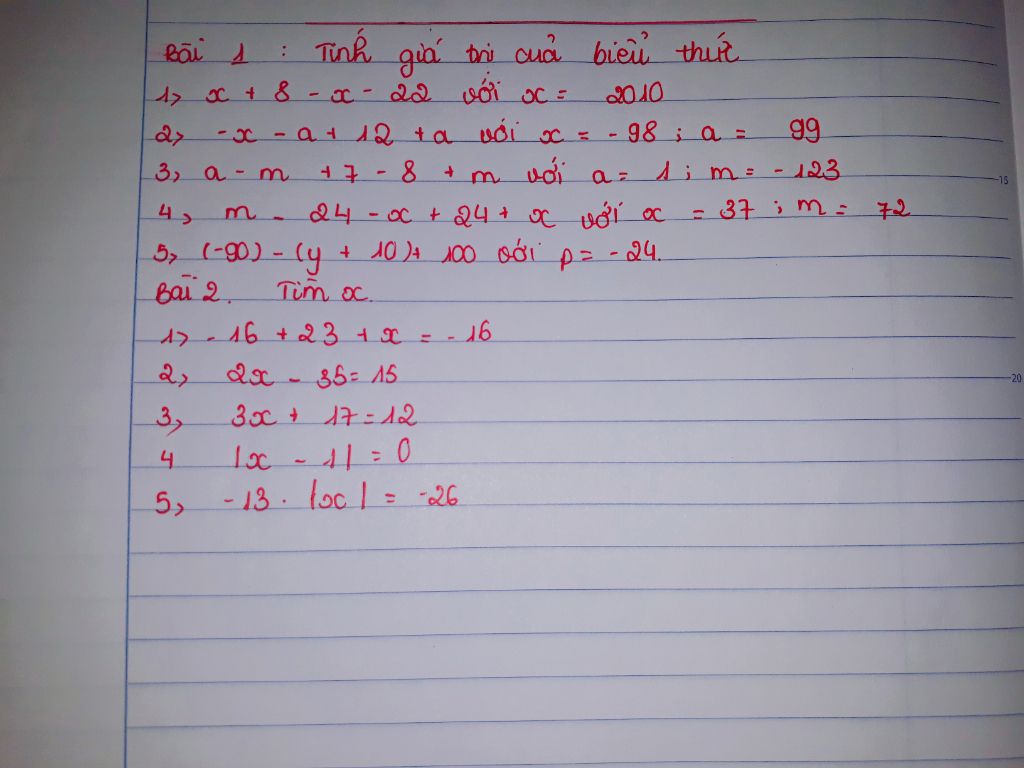 Bài 1 : Tính giá trị của biểu thức
1, x + 8 - x - 22 với x = 2010
2, -x - a + 12 + a với x = -98 ; a = 99
3, a - m + 7 - 8 + m với a = 1 ; m = -123
4, m - 24 - x + 24 + x với x = 37 ; m = 72
5, (-90) - (y + 10) + 100 với p = -24.
Bài 2. Tìm x.
1, -16 + 23 + x = -16
2, 2x - 35 = 15
3, 3x + 17 = 12
4 |x - 1| = 0
5, -13 . |x| = -26
15
20